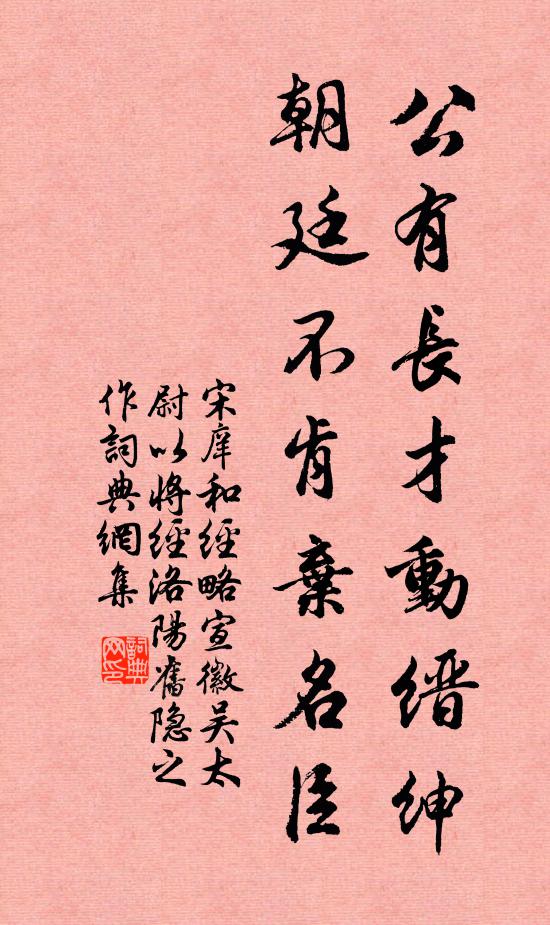 公有長才動縉紳
朝廷不肯棄名臣
宋庠和經略宣徽吴太
尉以將經洛陽舊隐之
作詞典網集
詞典
网印